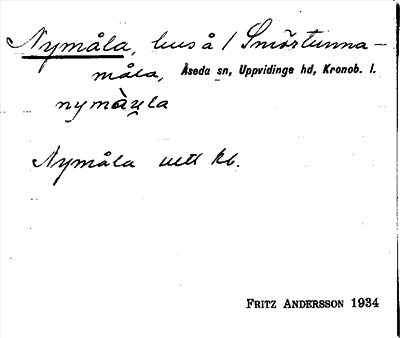 Nymåla, hus å 1 Smörtunna-
måla, Åseda sn, Uppvidinge hd, Kronob. l.
Nymåla utt kb.
FRITZ ANDERSSON 1934